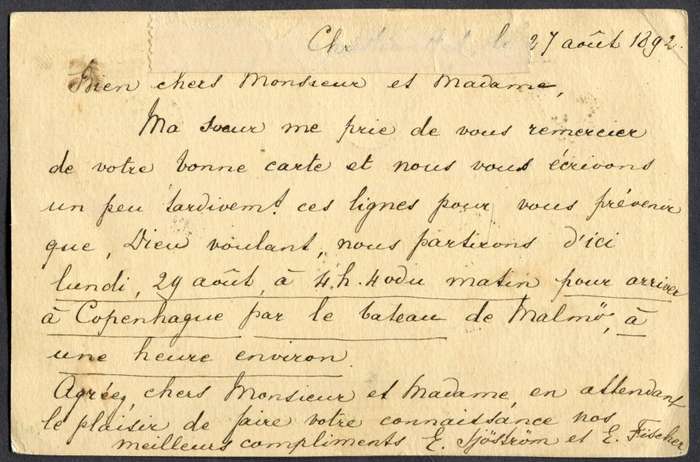 27 août 1892.
Bien chers Monsieur et Madame,
Ma sœur me prie de vous remercier
de votre bonne carte et nous vous écrivons
un peu tardivemt. ces lignes pour vous prévenir
que, Dieu voulant, nous partirons d'ici
lundi, 29 août, à 4.h.40 du matin pour arriver
à Copenhague par le bateau de Malmö, à
une heure environ.
Agréez, chers Monsieur et Madame, en attendant
le plaisir de faire votre connaissance nos
meilleurs compliments E. Sjöström et E. Fischer